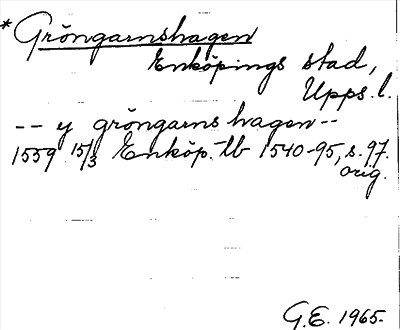 * Gröngarnshagen
Enköpings stad,
Upps. l.
-- y gröngarns hagen --
1559 15/3 Enköp. tb 1540-95, s. 97.
orig.
G.E. 1965.